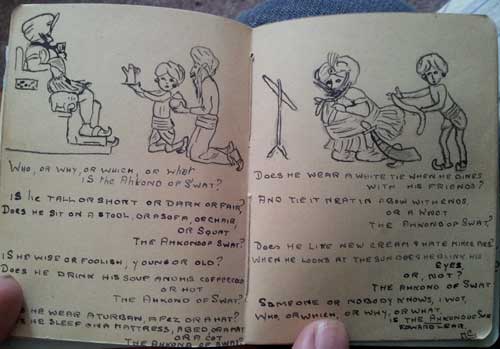 WHO, OR WHY, OR WHICH, OR WHAT
IS THE AHKOND OF SWAT?
IS HE TALL OR SHORT OR DARK OR FAIR?
DOES HE SIT ON A STOOL, OR A SOFA, OR CHAIR,
OR SQUAT
THE AHKOND OF SWAT?
IS HE WISE OR FOOLISH, YOUNG OR OLD?
DOES HE DRINK HIS SOUP AND HIS COFFEE COLD
OR HOT
THE AHKOND OF SWAT?
HE WEAR A TURBAN, A FEZ OR A HAT?
HE SLEEP ON A MATTRESS, A BED, OR A MAT
OR A COT
THE AHKOND OF SWAT?
DOES HE WEAR A WHITE TIE WHEN HE DINES
WITH HIS FRIENDS?
AND TIE IT NEAT IN A BOW WITH ENDS,
OR A KNOT
THE AHKOND OF SWAT?
DOES HE LIKE NEW CREAM & HATE MINCE PIES?
WHEN HE LOOKS AT THE SUN DOES HE BLINK HIS
EYES
OR, NOT?
THE AHKOND OF SWAT
SOMEONE OR NOBODY KNOWS, I WOT,
WHO, OR WHICH, OR WHY, OR WHAT.
IS THE AHKOND OF SWAT
EDWARD LEAR.